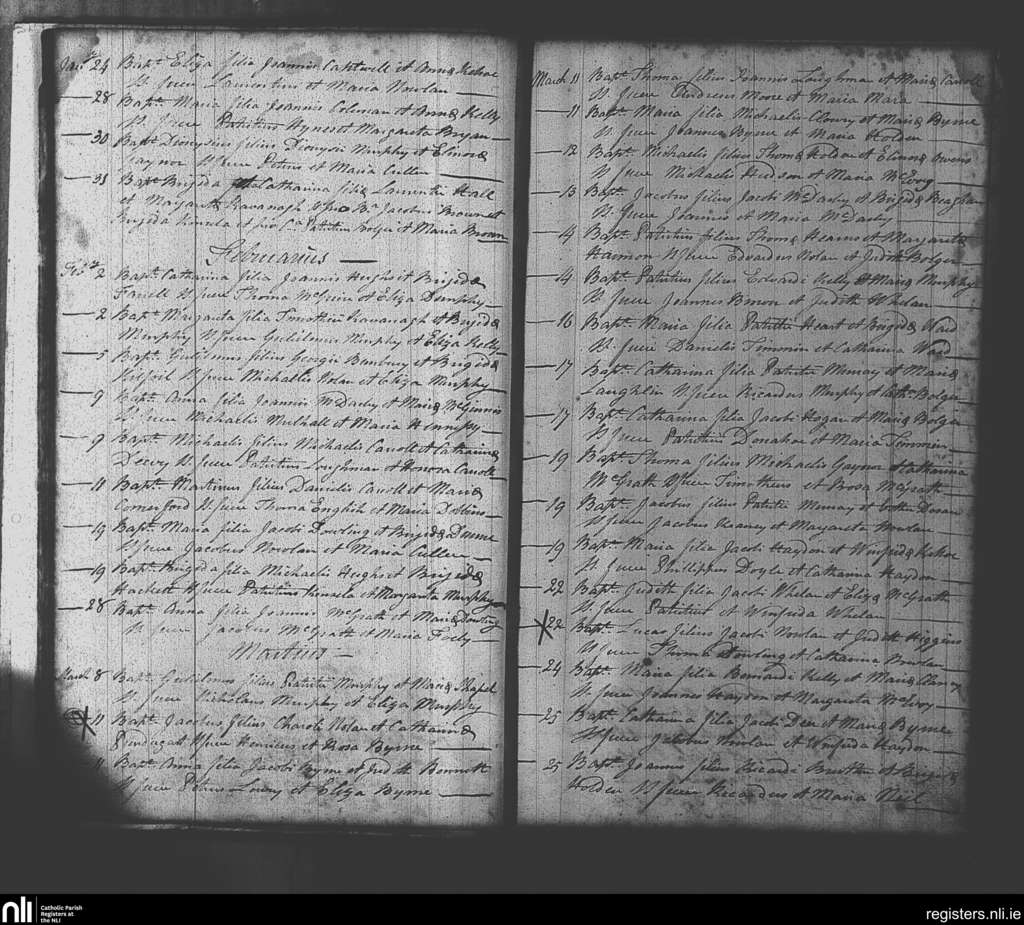 Jan 24 Bapt. Eliza filia Joannis Cantwell et Anna Kehoe
Sp. fuere Laurentius et Maria Nowlan
28 Bapt. Maria filia Joannis Coleman et Anna Kelly
Sp. fuere Patritius Hynes et Margareta Bryan
30 Bapt. Dionysius filius Dionysii Murphy et Elinora
Gaynor Sp. fuere Petrus et Maria Cullen
31 Bapt. Brigida et Catharina filiæ Laurentii Hall
et Margaritæ Kavanagh Sp. pro B. Jacobus Brown et
Brigida Kinsela et pro C. Patritius Bolger et Maria Brown
Februarius
Feb. 2 Bapt. Catharina filia Joannis Hughs et Brigida
Farrell Sp. fuere Thoma McGuire et Eliza Dunphy
2 Bapt. Margareta filia Timothei Kavanagh et Brigida
Murphy Sp. fuere Gulielmus Murphy et Eliza Kelly
5 Bapt. Gulielmus filius Georgii Banbury et Brigida
Kilfoil Sp. fuere Michaelis Nolan et Eliza Murphy
9 Bapt. Anna filia Joannis McDarby et Maria McGinnis
Sp. fuere Michaelis Mulhall et Maria Hennessy
9 Bapt. Michaelis filius Michaelis Carroll et Catharina
Sp. fuere Patritius Loughman et Honora Carroll
11 Bapt. Martinus filius Danielis Carroll et Maria
Comerford Sp. fuere Thoma English et Maria Dobbins
19 Bapt. Maria filia Jacobi Dowling et Brigida Dunne
Sp. fuere Jacobus Nowlan et Maria Cullen
19 Bapt. Brigida filia Michaelis Hughs et Brigida
Hackett Sp. fuere Patritius Kinsela et Margarita Murphy
28 Bapt. Anna filia Joannis McGrath et Maria Dowling
Sp. fuere Jacobus McGrath et Maria Foley
Martius
March 8 Bapt. Gulielmus filius Patritii Murphy et Maria
Sp. fuere Nicholaus Murphy et Eliza Murphy
X 11 Bapt. Jacobus filius Charoli Nolan et Catharina
Sp. fuere Henricus et Rosa Byrne
11 Bapt. Anna filia Jacobi Byrne et Judith Bennett
Sp. fuere Petrus Lowry et Eliza Byrne
March 11 Bapt. Thoma filius Joannis Loughman et Maria Carroll
Sp. fuere Andreas Moore et Maria Mara
11 Bapt. Maria filia Michaelis Clowry et Maria Byrne
Sp. fuere Joannes Byrne et Maria Holden
12 Bapt. Michaelis filius Thoma Holden et Elinora Owens
Sp. fuere Michaelis Hudson et Maria McEvoy
13 Bapt. Jacobus filius Jacobi McDarby et Brigida Beaghan
Sp. fuere Joannis et Maria McDarby
14 Bapt. Patritius filius Thoma Hearns et Margarita
Harmon Sp. fuere Edvardus Nolan et Judith Bolger
14 Bapt. Patritius filius Edvardi Kelly et Maria Murphy
Sp. fuere Joannes et Judith Whelan
16 Bapt. Maria filia Patritii Heart et Brigida Ward
Sp. fuere Danielis Timmin et Catharina Ward
17 Bapt. Catharina filia Patritii Murray et Maria
Laughlin Sp. fuere Ricardus Murphy et Cath. Bolger
17 Bapt. Catharina filia Jacobi Hogan et Maria Bolger
Sp. fuere Patritius Donahoe et Maria Timmin
19 Bapt. Thoma filius Michaelis Gaynor et Catharina
McGrath Sp. fuere Timotheus et Rosa McGrath
19 Bapt. Jacobus filius Patritii Murray et Cath. Doran
Sp. fuere Jacobus Keaney et Margareta Nowlan
19 Bapt. Maria filia Jacobi Haydon et Winifrida Kehoe
Sp. fuere Phillippus Doyle et Catharina Haydon
22 Bapt. Judith filia Jacobi Whelan et Eliza McGrath
Sp. fuere Patritius et Winifrida Whelan
X 22 Bapt. Lucas filius Jacobi Nowlan et Judith Higgins
Sp. fuere Thoma Dowling et Catharina Nowlan
24 Bapt. Maria filia Bernardi Kelly et Maria Clancy
Sp. fuere Joannes Haydon et Margareta McEvoy
25 Bapt. Catharina filia Jacobi Deen et Maria Byrne
Sp. fuere Jacobus Nowlan et Winifrida Haydon
25 Bapt. Joannis filius Ricardi et Brigida
Holden Sp. fuere Ricardus et Maria Neil
nli Catholic Parish
Registers at
the NLI
registers.nli.ie